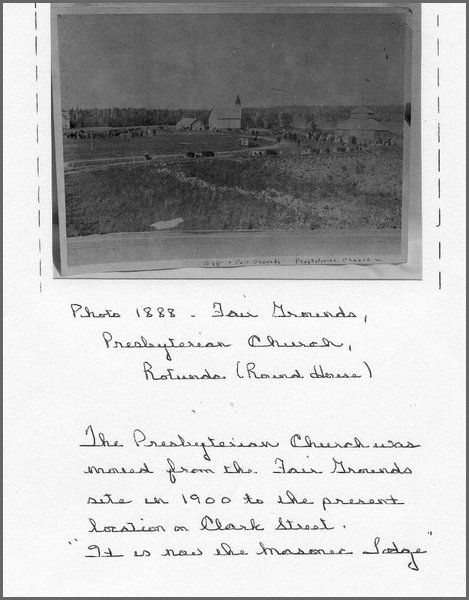 1888 - Fair Grounds - Presbyterian Church -
Photo 1888 - Fair Grounds,
Presbyterian Church,
Rotunda (Round House)
The Presbyterian Church was
moved from the Fair Grounds
site in 1900 to the present
location on Clark Street.
"It is now the Masonic Lodge"